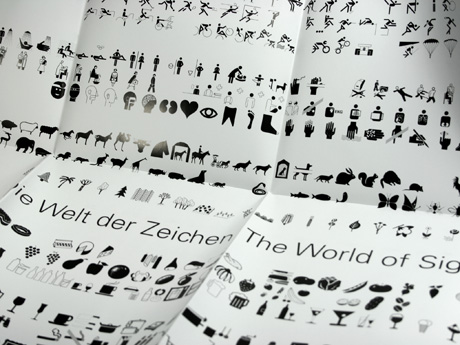 ie Welt der Zeichen
The World of Sig